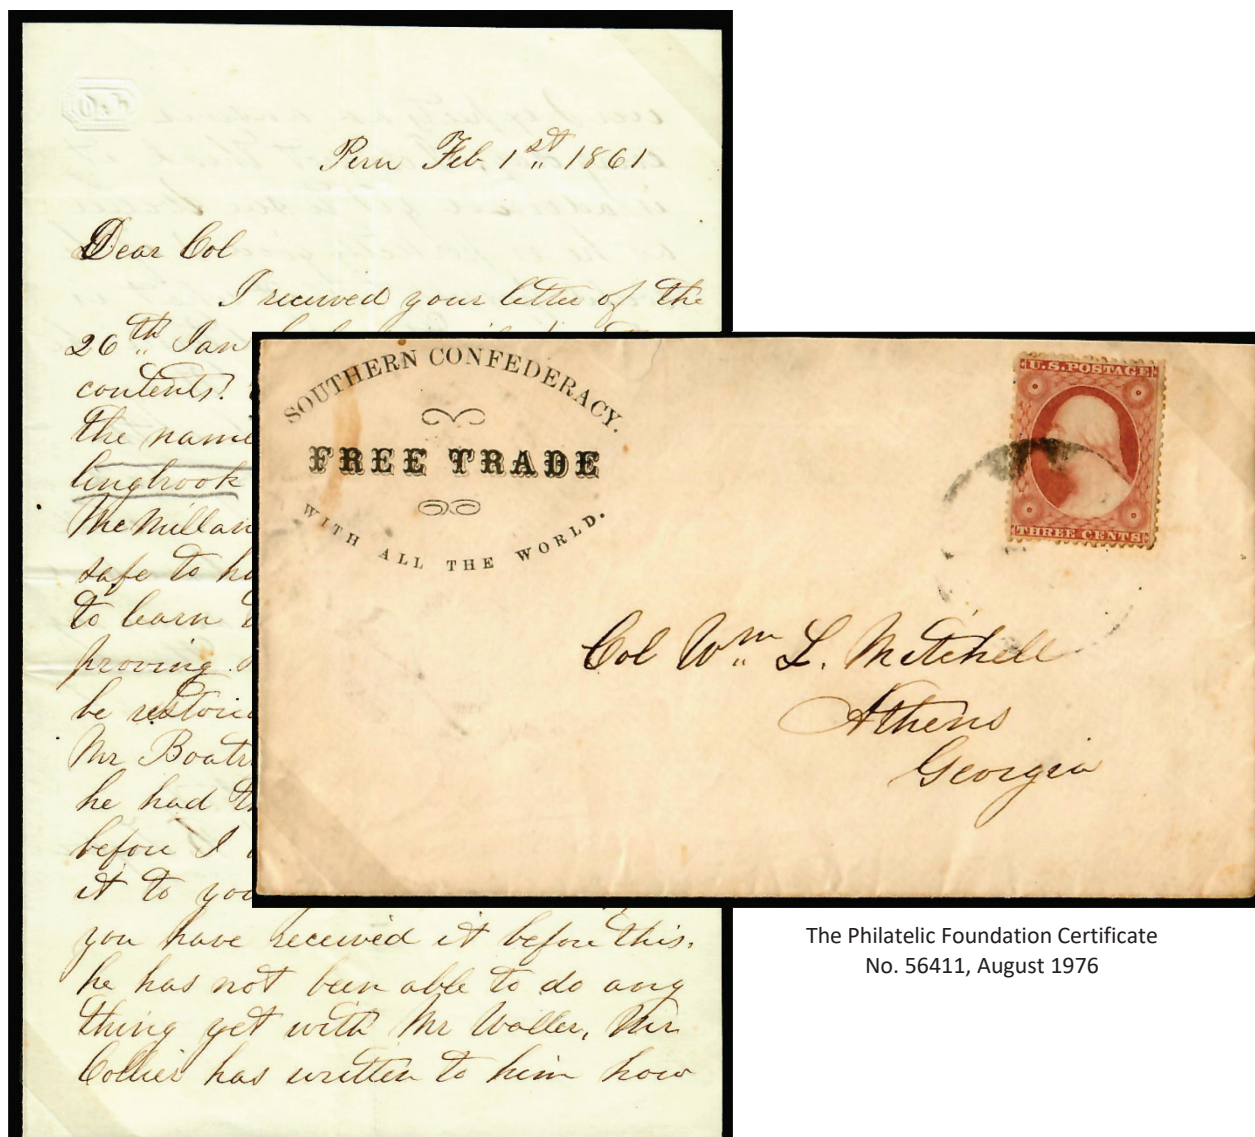 Peru Feb 1st 1861
Dear Col
I received your letter of the
26th Jan
contents.
the name
lingbrook
McMillan
safe to
to learn
proving
be restored
Mr
he had
before I
it to you
you have received it before this.
he has not been able to do any
thing yet with Mr Waller, Mr
Collier has written to him how
SOUTHERN CONFEDERACY.
FREE TRADE
WITH ALL THE WORLD.
U.S. POSTAGE
THREE CENTS
Col Wm L. Mitchell
Athens
Georgia
The Philatelic Foundation Certificate
No. 56411, August 1976